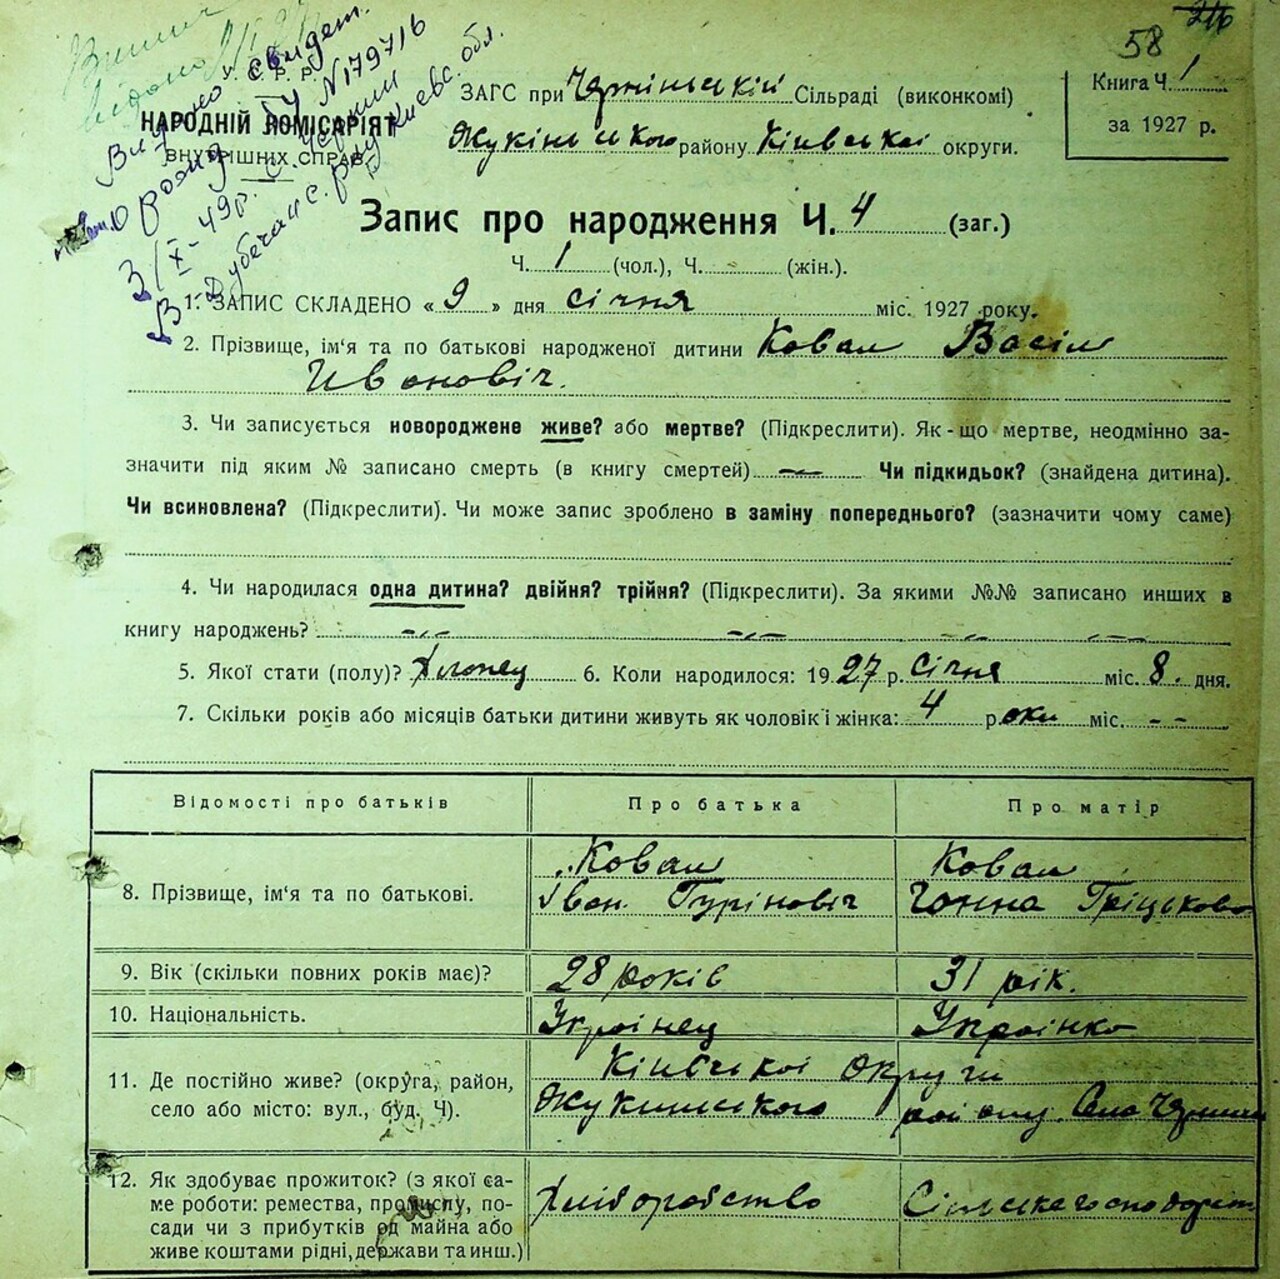 58
У. С. Р. Р.
НАРОДНІЙ КОМІСАРІЯТ
ВНУТРІШНІХ СПРАВ
свидет.
N 179716
3/X-49р.
ЗАГС при Сільраді (виконкомі)
району Кіівськоі округи.
Книга Ч. 1
за 1927 р.
Запис про народження Ч. 4 (заг.)
Ч. 1 (чол.), Ч. - (жін.).
1. ЗАПИС СКЛАДЕНО « 9 » дня січня міс. 1927 року.
2. Прізвище, ім'я та по батькові народженої дитини Ковал Васіль
Ивановіч.
3. Чи записується новороджене живе? або мертве? (Підкреслити). Як-що мертве, неодмінно за-
значити під яким № записано смерть (в книгу смертей) — Чи підкидьок? (знайдена дитина).
Чи всиновлена? (Підкреслити). Чи може запис зроблено в заміну попереднього? (зазначити чому саме)
4. Чи народилася одна дитина? двійня? трійня? (Підкреслити). За якими №№ записано инших в
книгу народжень?
5. Якої стати (полу)? Хлопец 6. Коли народилося: 1927 р. січня міс. 8. дня.
7. Скільки років або місяців батьки дитини живуть як чоловік і жінка: 4 роки міс. - -
Відомості про батьків Про батька Про матір
8. Прізвище, ім'я та по батькові. Ковал Іван Гуріновіч Ковал Ганна Гріцькова
9. Вік (скільки повних років має)? 28 років 31 рік.
10. Національність. Украінец Украінка
11. Де постійно живе? (округа, район, Кіівськоі Округи
село або місто: вул., буд. Ч). Жукинського району Село
12. Як здобуває прожиток? (з якої са-
ме роботи: ремества, промислу, по- Хліборобство
сади чи з прибутків од майна або
живе коштами рідні, держави та инш.)